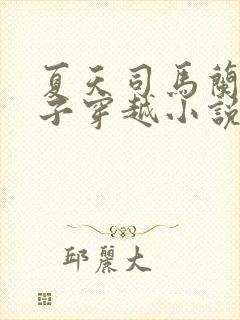 夏天司馬蘭
子穿越小說
邱麗大